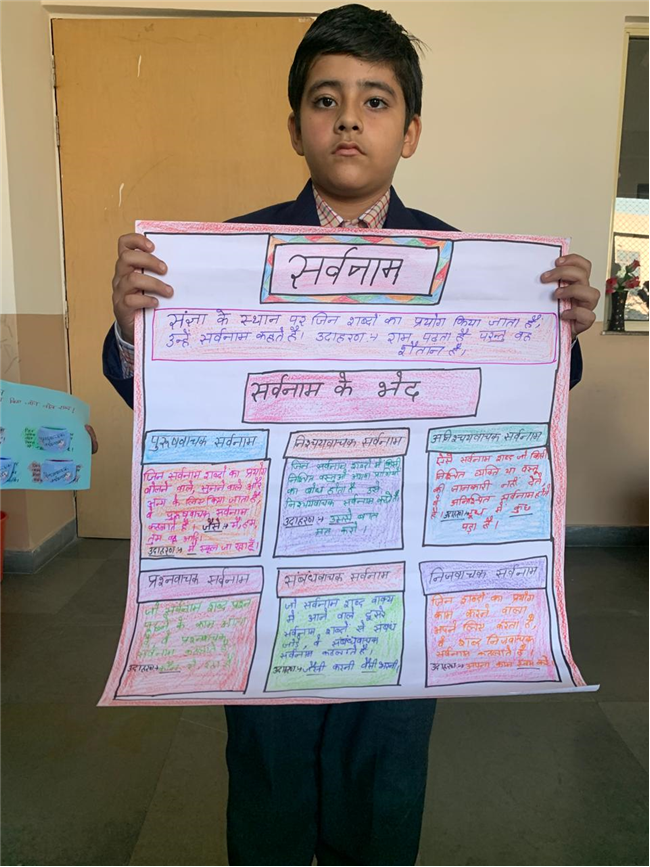 सर्वनाम
संज्ञा के स्थान पर जिन शब्दों का प्रयोग किया जाता है,
उन्हें सर्वनाम कहते है। उदाहरण→ राम पढ़ता है परन्तु वह
शैतान है।
सर्वनाम के भेद
पुरुषवाचक सर्वनाम
जिन सर्वनाम शब्दों का प्रयोग
बोलने वाले, सुनने वाले और
अन्य के लिए किया जाता है,
वे पुरुषवाचक सर्वनाम
कहलाते है। जैसे → मैं, हम,
तुम वह आदि।
उदाहरण → मैं स्कूल जा रहा हूँ
निश्चयवाचक सर्वनाम
जिन सर्वनाम शब्दों से किसी
निश्चित वस्तु
का बोध होता है, उसे
निश्चयवाचक सर्वनाम कहते हैं,
उदाहरण → उससे बात
मत करो।
अनिश्चयवाचक सर्वनाम
ऐसे सर्वनाम शब्द जो किसी
निश्चित व्यक्ति या वस्तु
की जानकारी नहीं देते
वे अनिश्चित सर्वनाम होते
है। दूध में कुछ
पड़ा है।
प्रश्नवाचक सर्वनाम
जो सर्वनाम शब्द प्रश्न
पूछने के काम आता
है वे प्रश्नवाचक
सर्वनाम कहलाते है
उदाहरण →
संबंधवाचक सर्वनाम
जो सर्वनाम शब्द वाक्य
में आने वाले दूसरे
सर्वनाम शब्दों से संबंध
जोड़े, वे संबंधवाचक
सर्वनाम कहलाते है।
उदाहरण → जैसी करनी वैसी भरनी
निजवाचक सर्वनाम
जिन शब्दों का प्रयोग
काम करने वाला
अपने लिए करता है,
वे शब्द निजवाचक
सर्वनाम कहलाते है।
उदाहरण → अपना काम करो